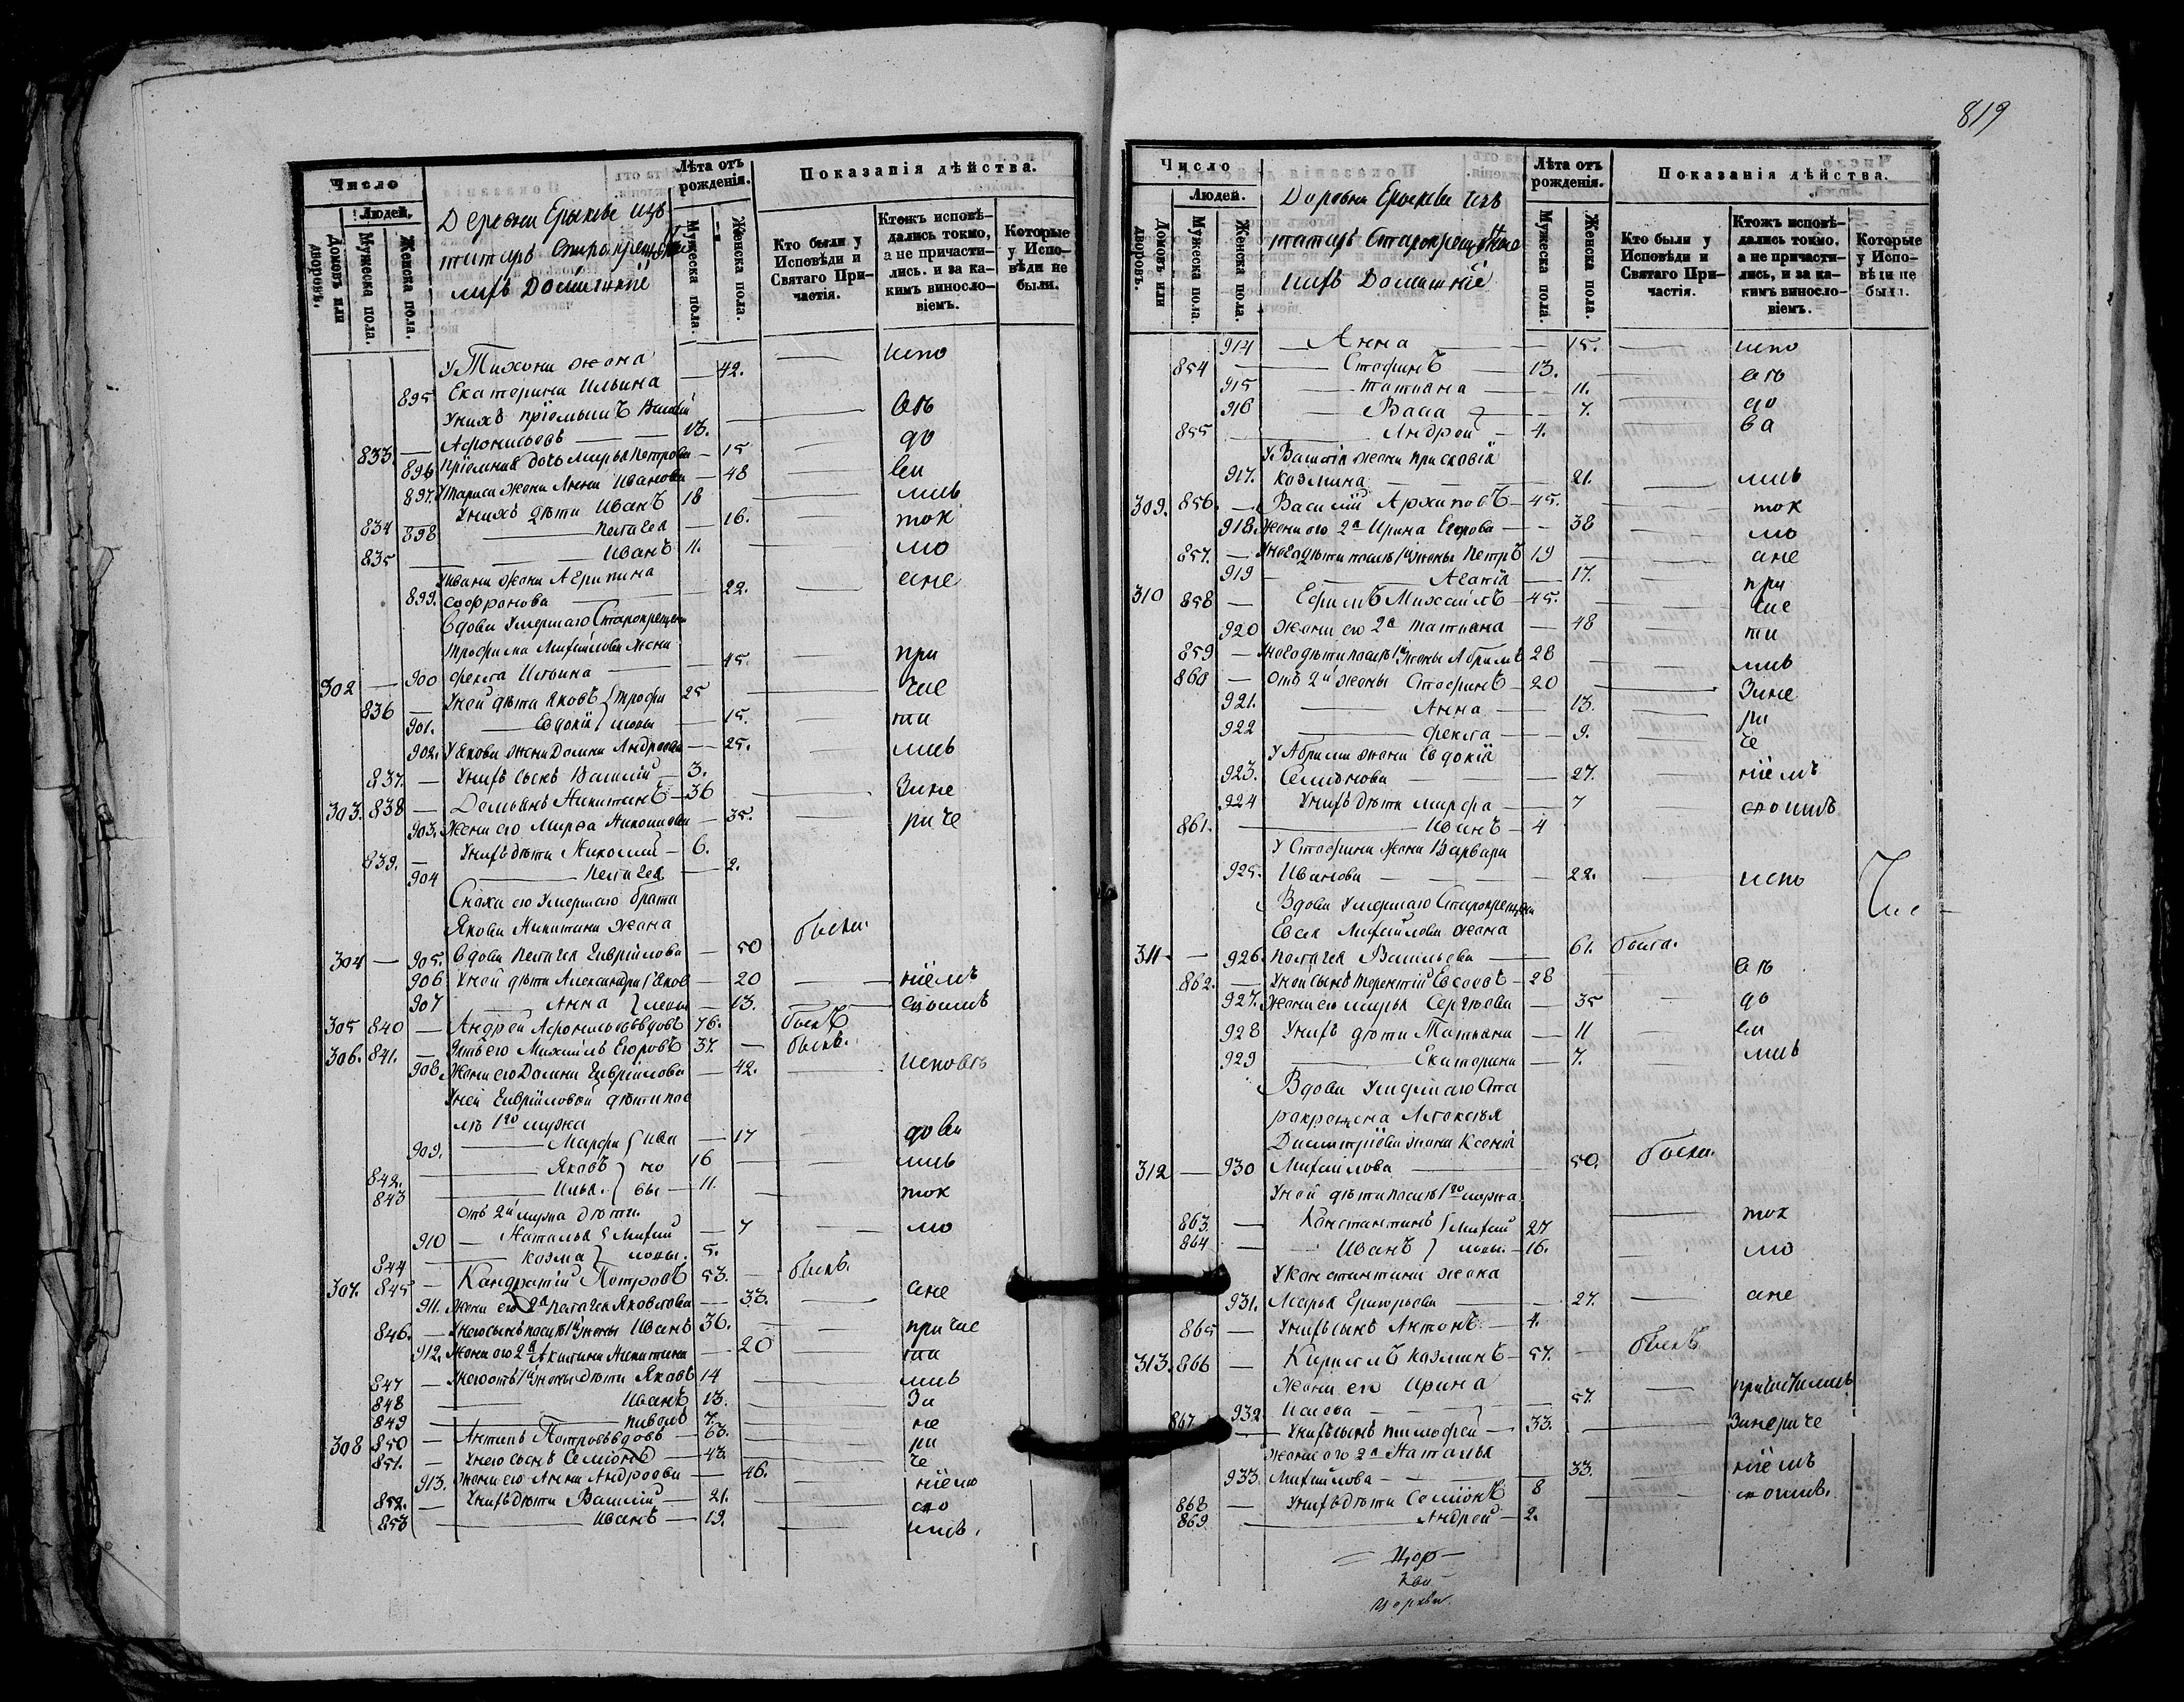 819
Число
Людей.
Домовъ или дворовъ.
Мужеска пола.
Женска пола.
Деревни Ерыклы изъ
татаръ Старокрещен
ихъ Домашнiе
Лѣта отъ рожденiя.
Мужеска пола.
Женска пола.
Показанiя дѣйства.
Кто были у Исповѣди и Святаго Причастiя.
Ктожъ исповѣдались токмо, а не причастились. и за какимъ винословiемъ.
Которые у Исповѣди не были.
У Тихона жена
895 Екатерина Ильина — 42. — испо
У нихъ прiемышъ Василiй
833. — Афонасьевъ — 13. — вѣ
896 Прiемная дочь Марья Петрова — 15 — да
897. У Тараса жена Анна Иванова — 48 — ли
834 — У нихъ дѣти Иванъ 18 — лись
898 — Пелагея — 16. — ток
835 — Иванъ 11. — мо
У Ивана жена Агрипина
899. Софронова — 22. — ане
Вдова умершаго Старокрещен
Трофима Михайлова жена
302 — 900 Фекла Ильина — 45. — при
836 — У ней дѣти Яковъ { Трофи 25 — час
901. — Евдокiя } мовы — 15. — ти
902. У Якова жена Домна Андреева — 25. — лись
837. — У нихъ сынъ Василiй — 3.
303. 838 — Демьянъ Никитинъ — 36 — Зане
903. Жена его Марѳа Николаева — 35. — рѣче
839. — У нихъ дѣти Николай — 6.
904 — Пелагея — 2.
Сноха его умершаго брата
Якова Никитина жена
304 — 905. вдова Пелагея Гаврiилова — 50 была.
906 У ней дѣти Александра { Яков — 20 — нiемъ
907 — Анна } левы — 13. — своимъ
305 840 — Андрей Афонасьевъ вдовъ 76. — былъ
306. 841. — Зять его Михаилъ Егоровъ 37. — былъ.
908. Жена его Домна Гаврiилова — 42. — исповѣ
У ней Гаврiиловой дѣти пос
лѣ 1го мужа
909. — Марфа { Ива — 17 — дова
842. — Яковъ } но 16 — лись
843 — Илья. } вы — 11. — ток
Отъ 2й мужа дѣти.
910 — Наталья { Михай — 7 — мо
844 — Козма } ловы. 5.
307. 845 — Кандратiй Петровъ 53. — былъ.
911. Жена его 2я Пелагея Яковлева — 33. — ане
846. — У него сынъ послѣ 1й жены Иванъ 36. — при час
912. Жена его 2я Акилина Никитина — 20 — ти
847 — У него отъ 1й жены дѣти Яковъ 14 — лись
848 — Иванъ 13. — За
849 — Павелъ 7. — не
308 850 — Антипъ Петровъ вдовъ — 63. — рѣ
851. — У него сынъ Семионъ — 43. — че
913. Жена его Анна Андреева — 46. — нiемъ
852. — У нихъ дѣти Василiй — 21. — сво
853 — Иванъ — 19. — имъ.
Число
Людей.
Домовъ или дворовъ.
Мужеска пола.
Женска пола.
Деревни Ерыклы изъ
татаръ Старокрещенно
ихъ Домашнiе
Лѣта отъ рожденiя.
Мужеска пола.
Женска пола.
Показанiя дѣйства.
Кто были у Исповѣди и Святаго Причастiя.
Ктожъ исповѣдались токмо, а не причастились, и за какимъ винословiемъ.
Которые у Исповѣди не были.
914 — Анна — 15. — испо
854 — Стефанъ — 13. — вѣ
915 — Татиана — 11. — до
916 — Васа — 7. — ва
855 — Андрей — 4.
У Василiя жена Прасковiя
917. Козмина — 21. — лись
309. 856. — Василiй Архиповъ — 45. — ток
918. Жена его 2я Ирина Егорова — 38 — мо
857. — У него дѣти послѣ 1й жены Петръ 19 — ане
919 — Агапiя — 17. — при
310 858 — Ефимъ Михайлъ — 45. — час
920 Жена его 2я Татиана — 48 — ти
859 — У него дѣти послѣ 1й жены Абрамъ 28 — лись
860 — Отъ 2й жены Стефанъ — 20 — Зане
921. — Анна — 13. — рѣ
922 — Фекла — 9. — че
У Абрама жена Евдокiя
923. Семионова — 27. — нiемъ
924 У нихъ дѣти Марфа — 7 — своимъ
861. — Иванъ — 4
У Стефана жена Варвара
925. Иванова — 22. — испо
Вдова умершаго Старокрещен
Евсея Михайлова жена
311 — 926. Пелагея Васильева — 61. была.
862. — У ней сынъ Терентiй Евсеевъ — 28 — вѣ
927. Жена его Марья Сергѣева — 35 — до
928 У нихъ дѣти Татиана — 11 — ва
929 — Екатерина — 7. — лись
Вдова умершаго Ста
рокрещена Алексѣя
Димитрiева жена Ксенiя
312 — 930 Михайлова — 50. была.
У ней дѣти послѣ 1го мужа
863. — Константинъ { Михай 27 — ток
864 — Иванъ } ловы. — 16. — мо
У Константина жена
931. Марья Григорьева — 27. — ане
865 — У нихъ сынъ Антонъ — 4.
313. 866 — Кирилъ Козминъ — 57. — былъ
Жена его Ирина
932 Исаева — 57. — причастились
867 — У нихъ сынъ Тимофей — 33. — Занерѣче
Жена его 2я Наталья
933. Михайлова — 33. — нiемъ
868 — У нихъ дѣти Семiонъ 8 — своимъ.
869 — Андрей — 2.